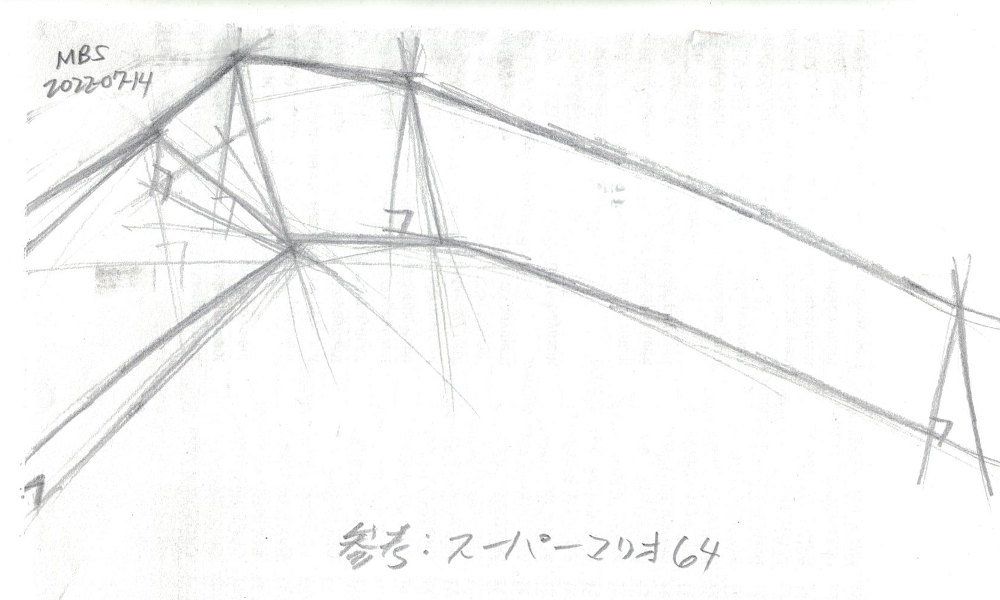 MBS
20220714
参考：スーパーマリオ64